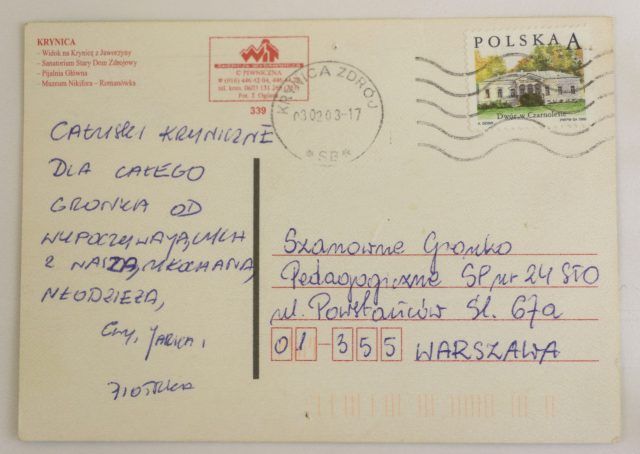 KRYNICA
- Widok na Krynicę z Jaworzyny
- Sanatorium Stary Dom Zdrojowy
- Pijalnia Główna
- Muzeum Nikifora – Romanówka
PIWNICZNA
339
KRYNICA ZDRÓJ
03 02 03-17
*SB*
POLSKA A
Dwór w Czarnolesie
CAŁUSKI KRYNICZNE
DLA CAŁEGO
GRONKA OD
WYPOCZYWAJĄCYCH
Z NASZĄ, UKOCHANĄ,
MŁODZIEŻĄ,
Szanowne Gronko
Pedagogiczne SP nr 24 STO
ul. Powstańców Śl. 67a
01-355 WARSZAWA